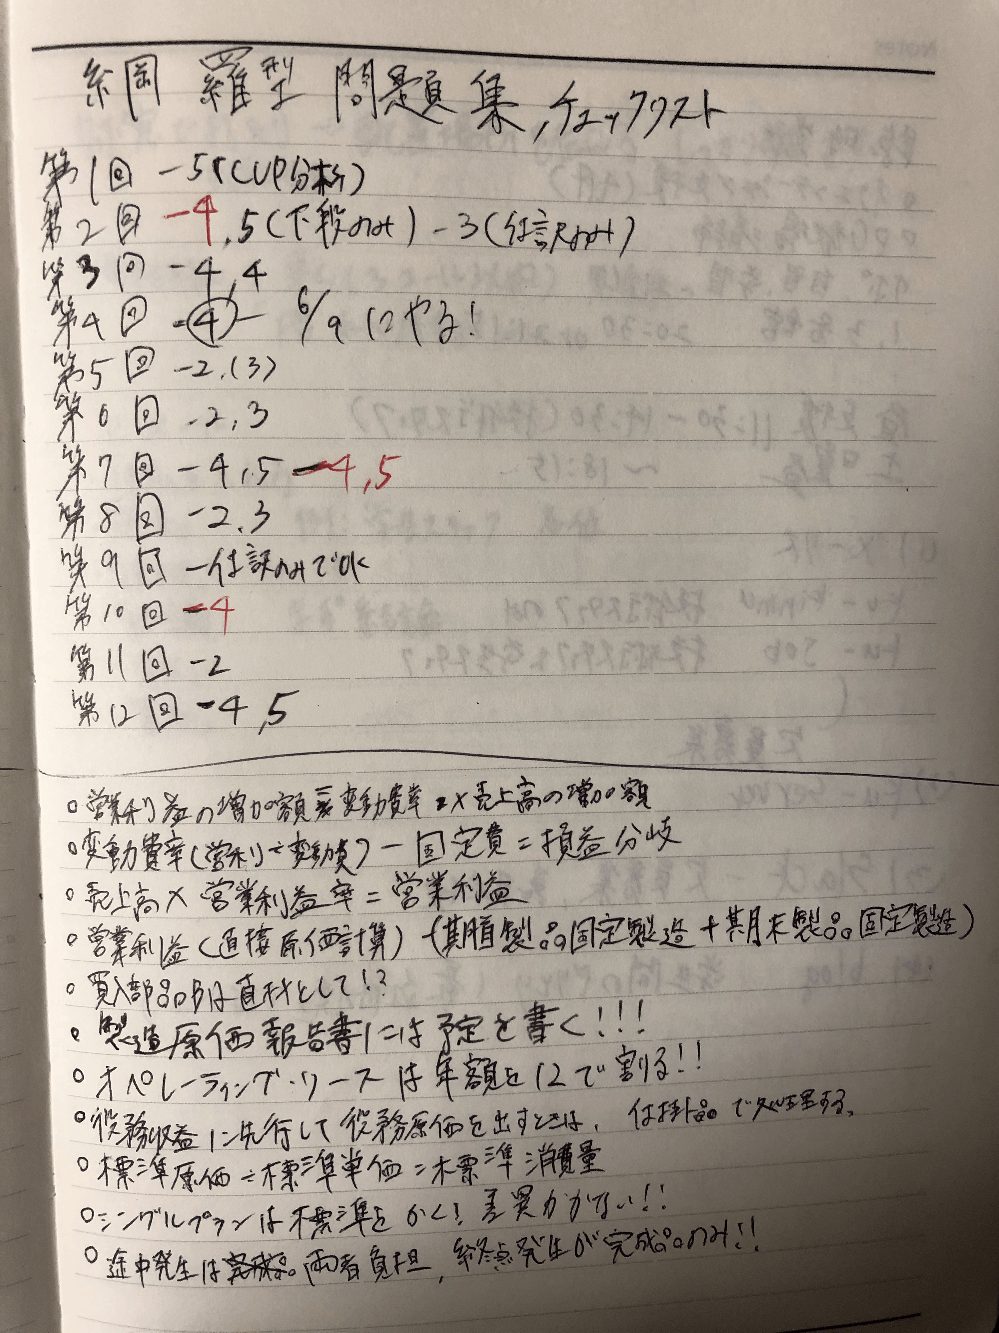 網羅型問題集,チェックリスト
第1回 -5(CVP分析)
第2回 -4,5(下段のみ) -3(仕訳のみ)
第3回 -4,4
第4回 -4- 6/9にやる!
第5回 -2,(3)
第6回 -2,3
第7回 -4,5 -4,5
第8回 -2,3
第9回 -仕訳のみでOK
第10回 -4
第11回 -2
第12回 -4,5
○営業利益の増加額 変動費率 ×売上高の増加額
○変動費率(営利÷変動費)-固定費=損益分岐
○売上高×営業利益率=営業利益
○営業利益(直接原価計算)-(期首製品固定製造+期末製品固定製造)
○買入部品Bは直材として!?
○製造原価報告書には予定を書く!!!
○オペレーティング・リースは年額を12で割る!!
○役務収益に先行して役務原価を出すときは、仕掛品で処理する。
○標準原価÷標準単価=標準消費量
○シングルプランは標準をかく!差異かかない!!
○途中発生は両者負担,終点発生が完成品のみ!!